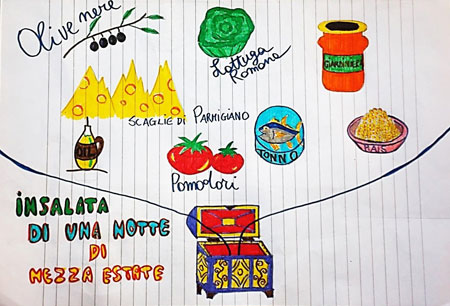 Olive nere
Lattuga
Romana
GIARDINIERA
SCAGLIE DI PARMIGIANO
TONNO
MAIS
Pomodori
INSALATA
DI UNA NOTTE
DI
MEZZA ESTATE